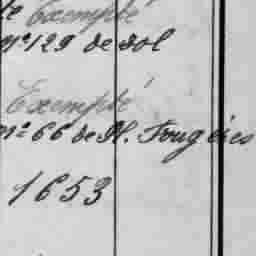 Exempté
nº 129 de dol
Exempté
nº 66 de Pl. Fougères
1653